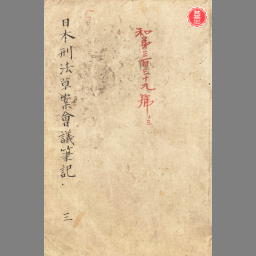 日本刑法草案會議筆記
三
和第三百三十九號